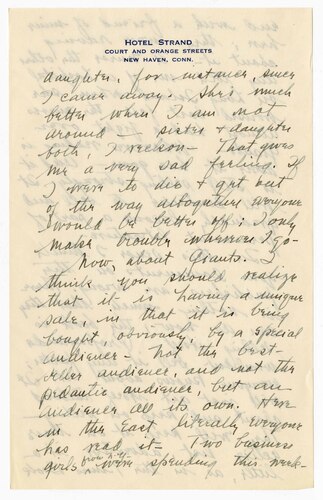 HOTEL STRAND
COURT AND ORANGE STREETS
NEW HAVEN, CONN.
daughter, for instance, since
I came away. She's much
better when I am not
around — sister & daughter
both, I reckon — That gives
me a very sad feeling. If
I were to die & get out
of the way altogether everyone
would be better off: I only
make trouble wherever I go—
Now, about Giants. I
think you should realize
that it is having a unique
sale, in that it is being
bought, obviously, by a special
audience — not the best-
seller audience, and not the
pedantic audience, but an
audience all its own. Here
in the East literally everyone
has read it — Two business
girls from N.Y. were spending this week-